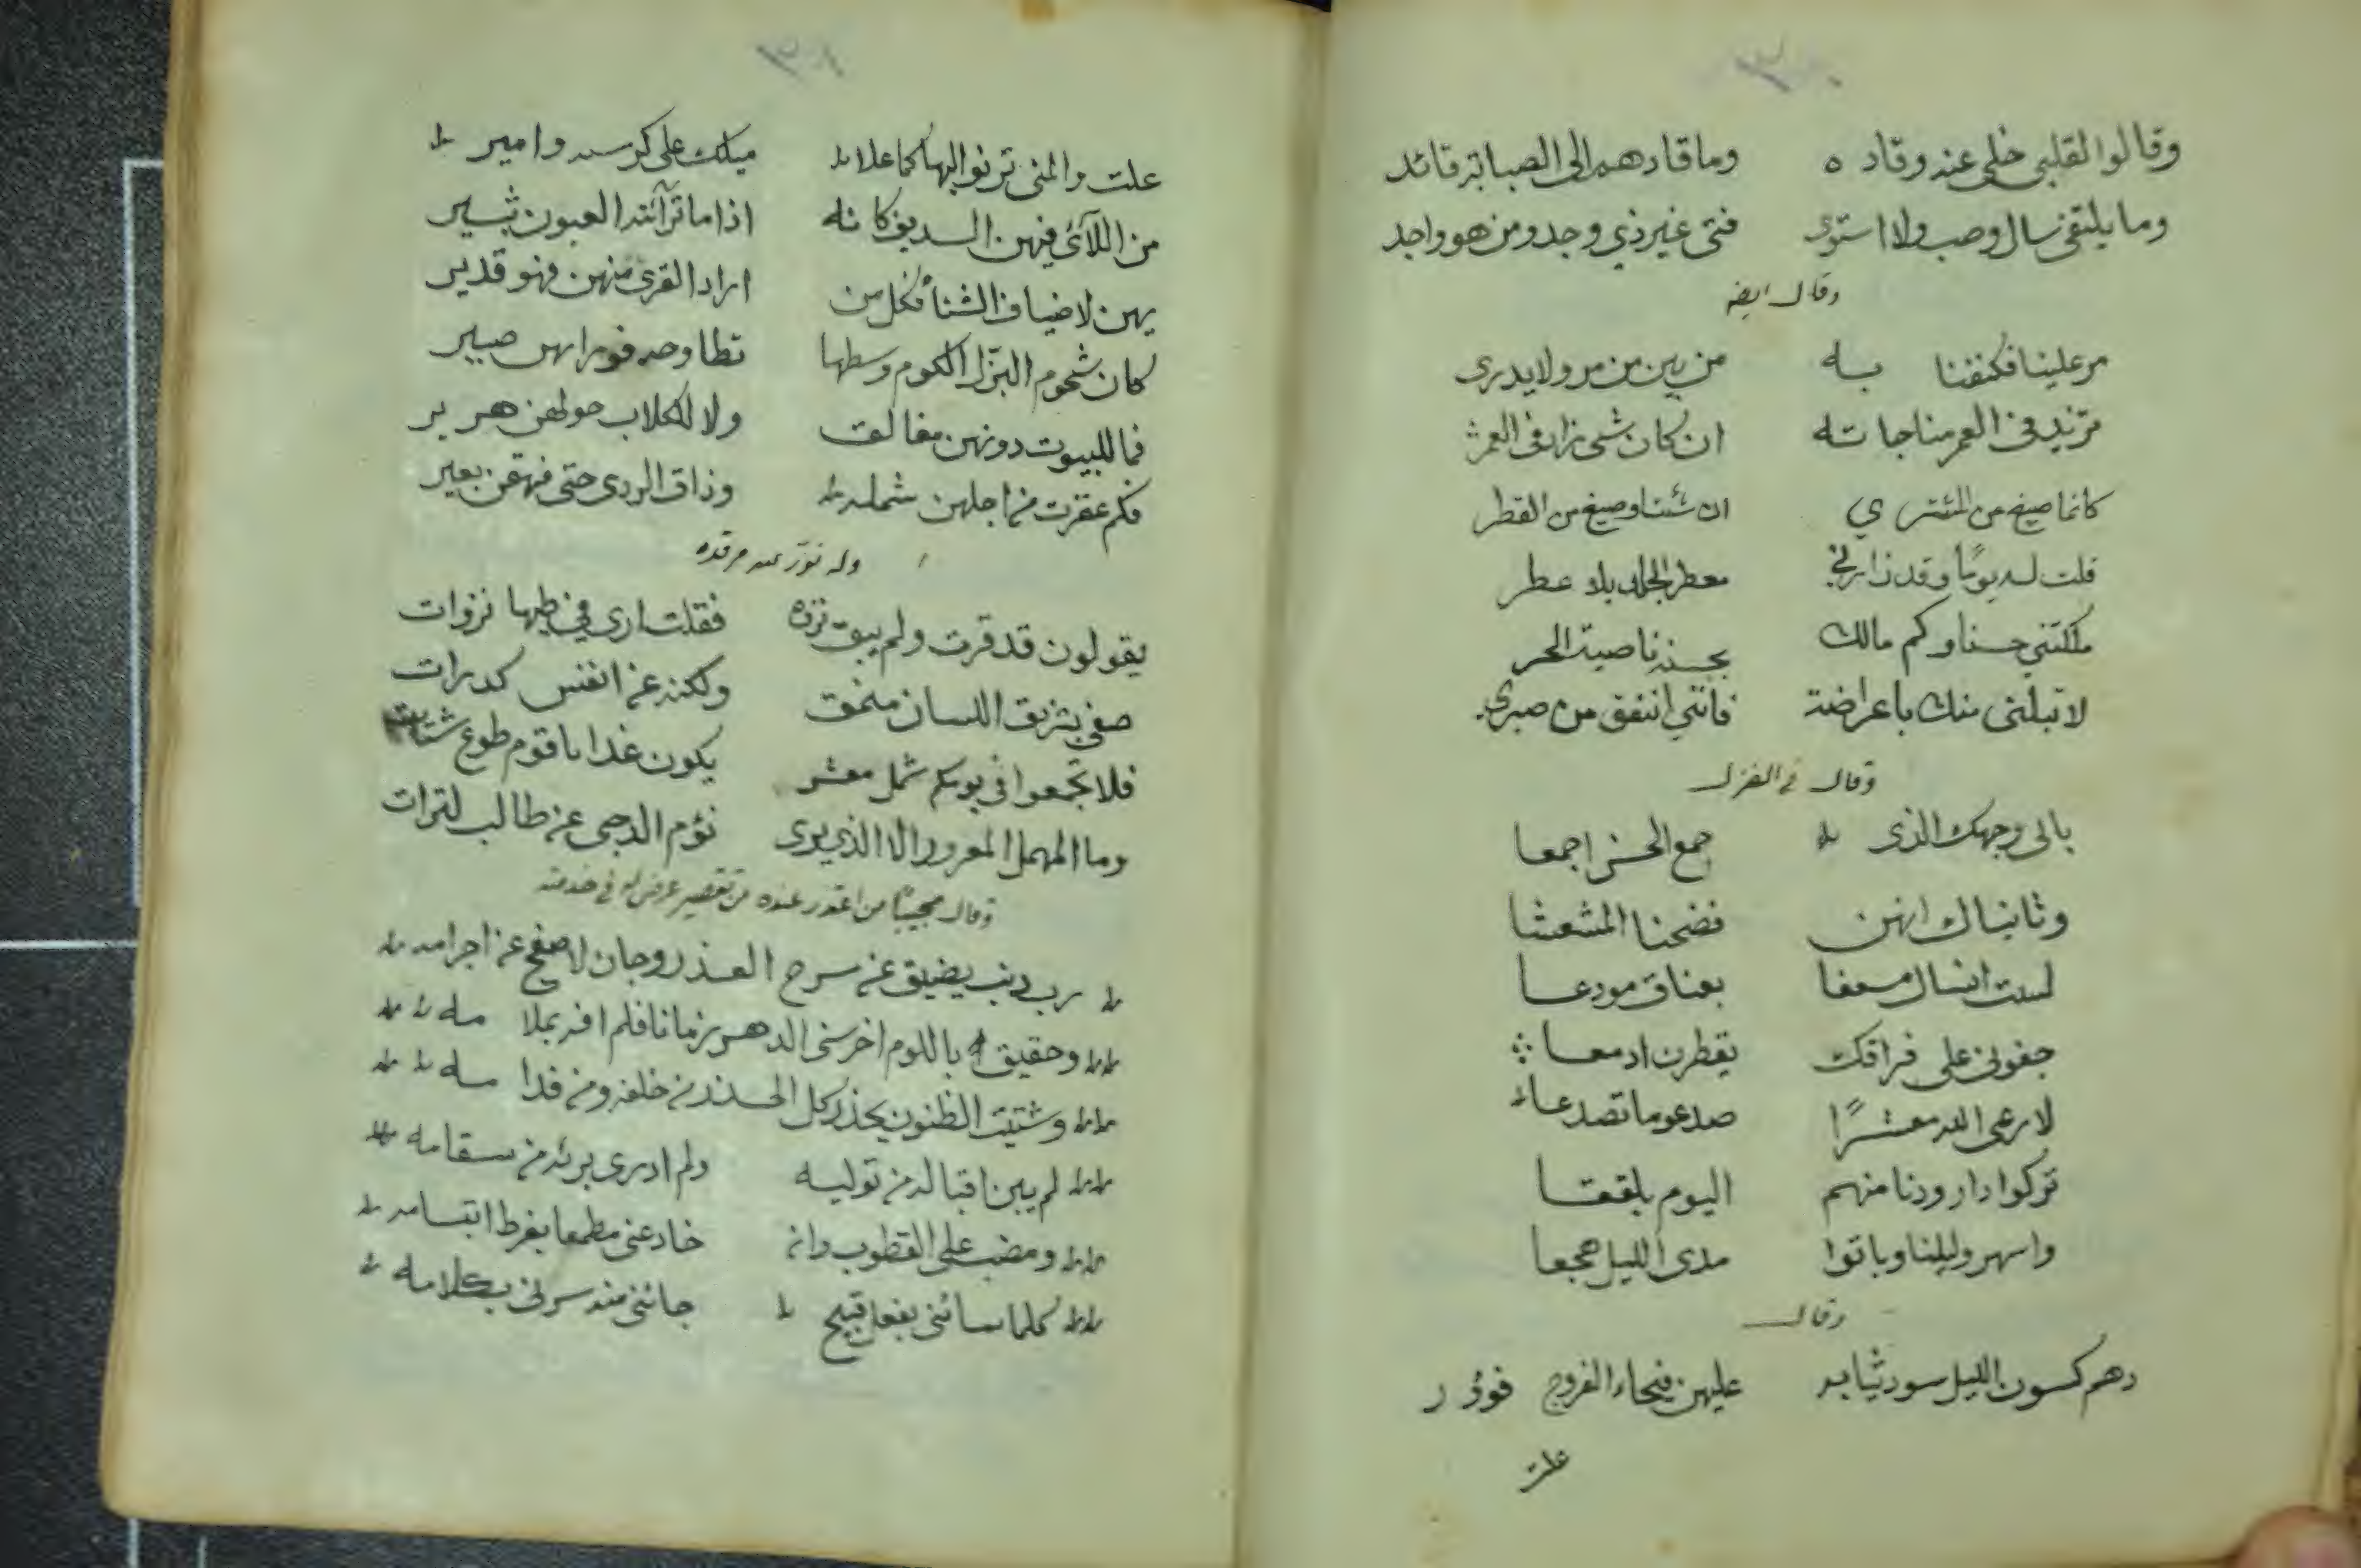 وقالوا لقلبي خلي عنه وقاده وما قادهم الى الصبابة قائد
وما يلتقي سال وصب ولا استوى فتى غير ذي وجد ومن هو واجد
وقال ايضه
مر علينا فكنفنا به من بين من مر ولا يدرى
تزيد في العمر مناجاته ان كان شى زاد في العمر
كانما صيغ من المشتري ان شئت او صيغ من القطر
قلت له يوما وقد زارني معطر الجلباب بلا عطر
ملكتني حسنا وكم مالك بحسنه ناصية الحر
لا تبلني منك باعراضة فانني انفق من صبري
وقال في الغزل
بالى وجهك الذى جمع الحسن اجمعا
وثناياك انهن فضحنا المشعشا
لست انساك مسعفا بعناق مودعا
جفوني على فراقك يقطرن ادمعا
لا رعى الله معشرًا صدعوا ما تصدعا
تركوا دار ودنا منهم اليوم بلقعا
واسهروا ليلنا وباتوا مدى الليل هجعا
وقال
دهم كسون الليل سود ثيابه عليهن فيحاء الفروج فوؤر
علت
علت والمنى ترنوا اليها كما علا مليك على كرسيه وامير
من اللآئي فيهن السديف كانه اذا ما ترآئته العيون ثبير
يهن لاضياف الشتأ فكل من اراد القرى منهن فهو قدير
كان شحوم البزل الكوم وسطها
فما للبيوت دونهن مغالق ولا للكلاب حولهن هرير
فكم عقرت من اجلهن شمله وذاق الردى حتى فهقن بعير
وله نور عنه مرقده
يقولون قد قرت ولم يبق نزه فقلت ارى في طيها نزوات
صفى بتزيق اللسان منمق ولكنه عن انفس كدرات
فلا تجمعوا في يومكم شمل معشر يكون غدا يا قوم طوع شتات
وما المهمل المغرور الا الذي يرى نؤم الدجى عن طالب لترات
وقال مجيبًا من اعتذر عنده من تقصير عرض له في خدمته
رب ذنب يضيق عن سرح العذر وجان لا صفح عن اجرامه
وحقيق باللوم اخرسنى الدهر زمانا فلم افه بملامه
وشتيت الظنون يحذر كل الحـذر من خلفه ومن قدامه
لم يبن اقباله من توليه ولم ادرى برئه من سقامه
ومضب على القطوب وان خادعنى مطمعا بفرط ابتسامه
كلما سائنى بفعل قبيح جائنى منه سرنى بكلامه